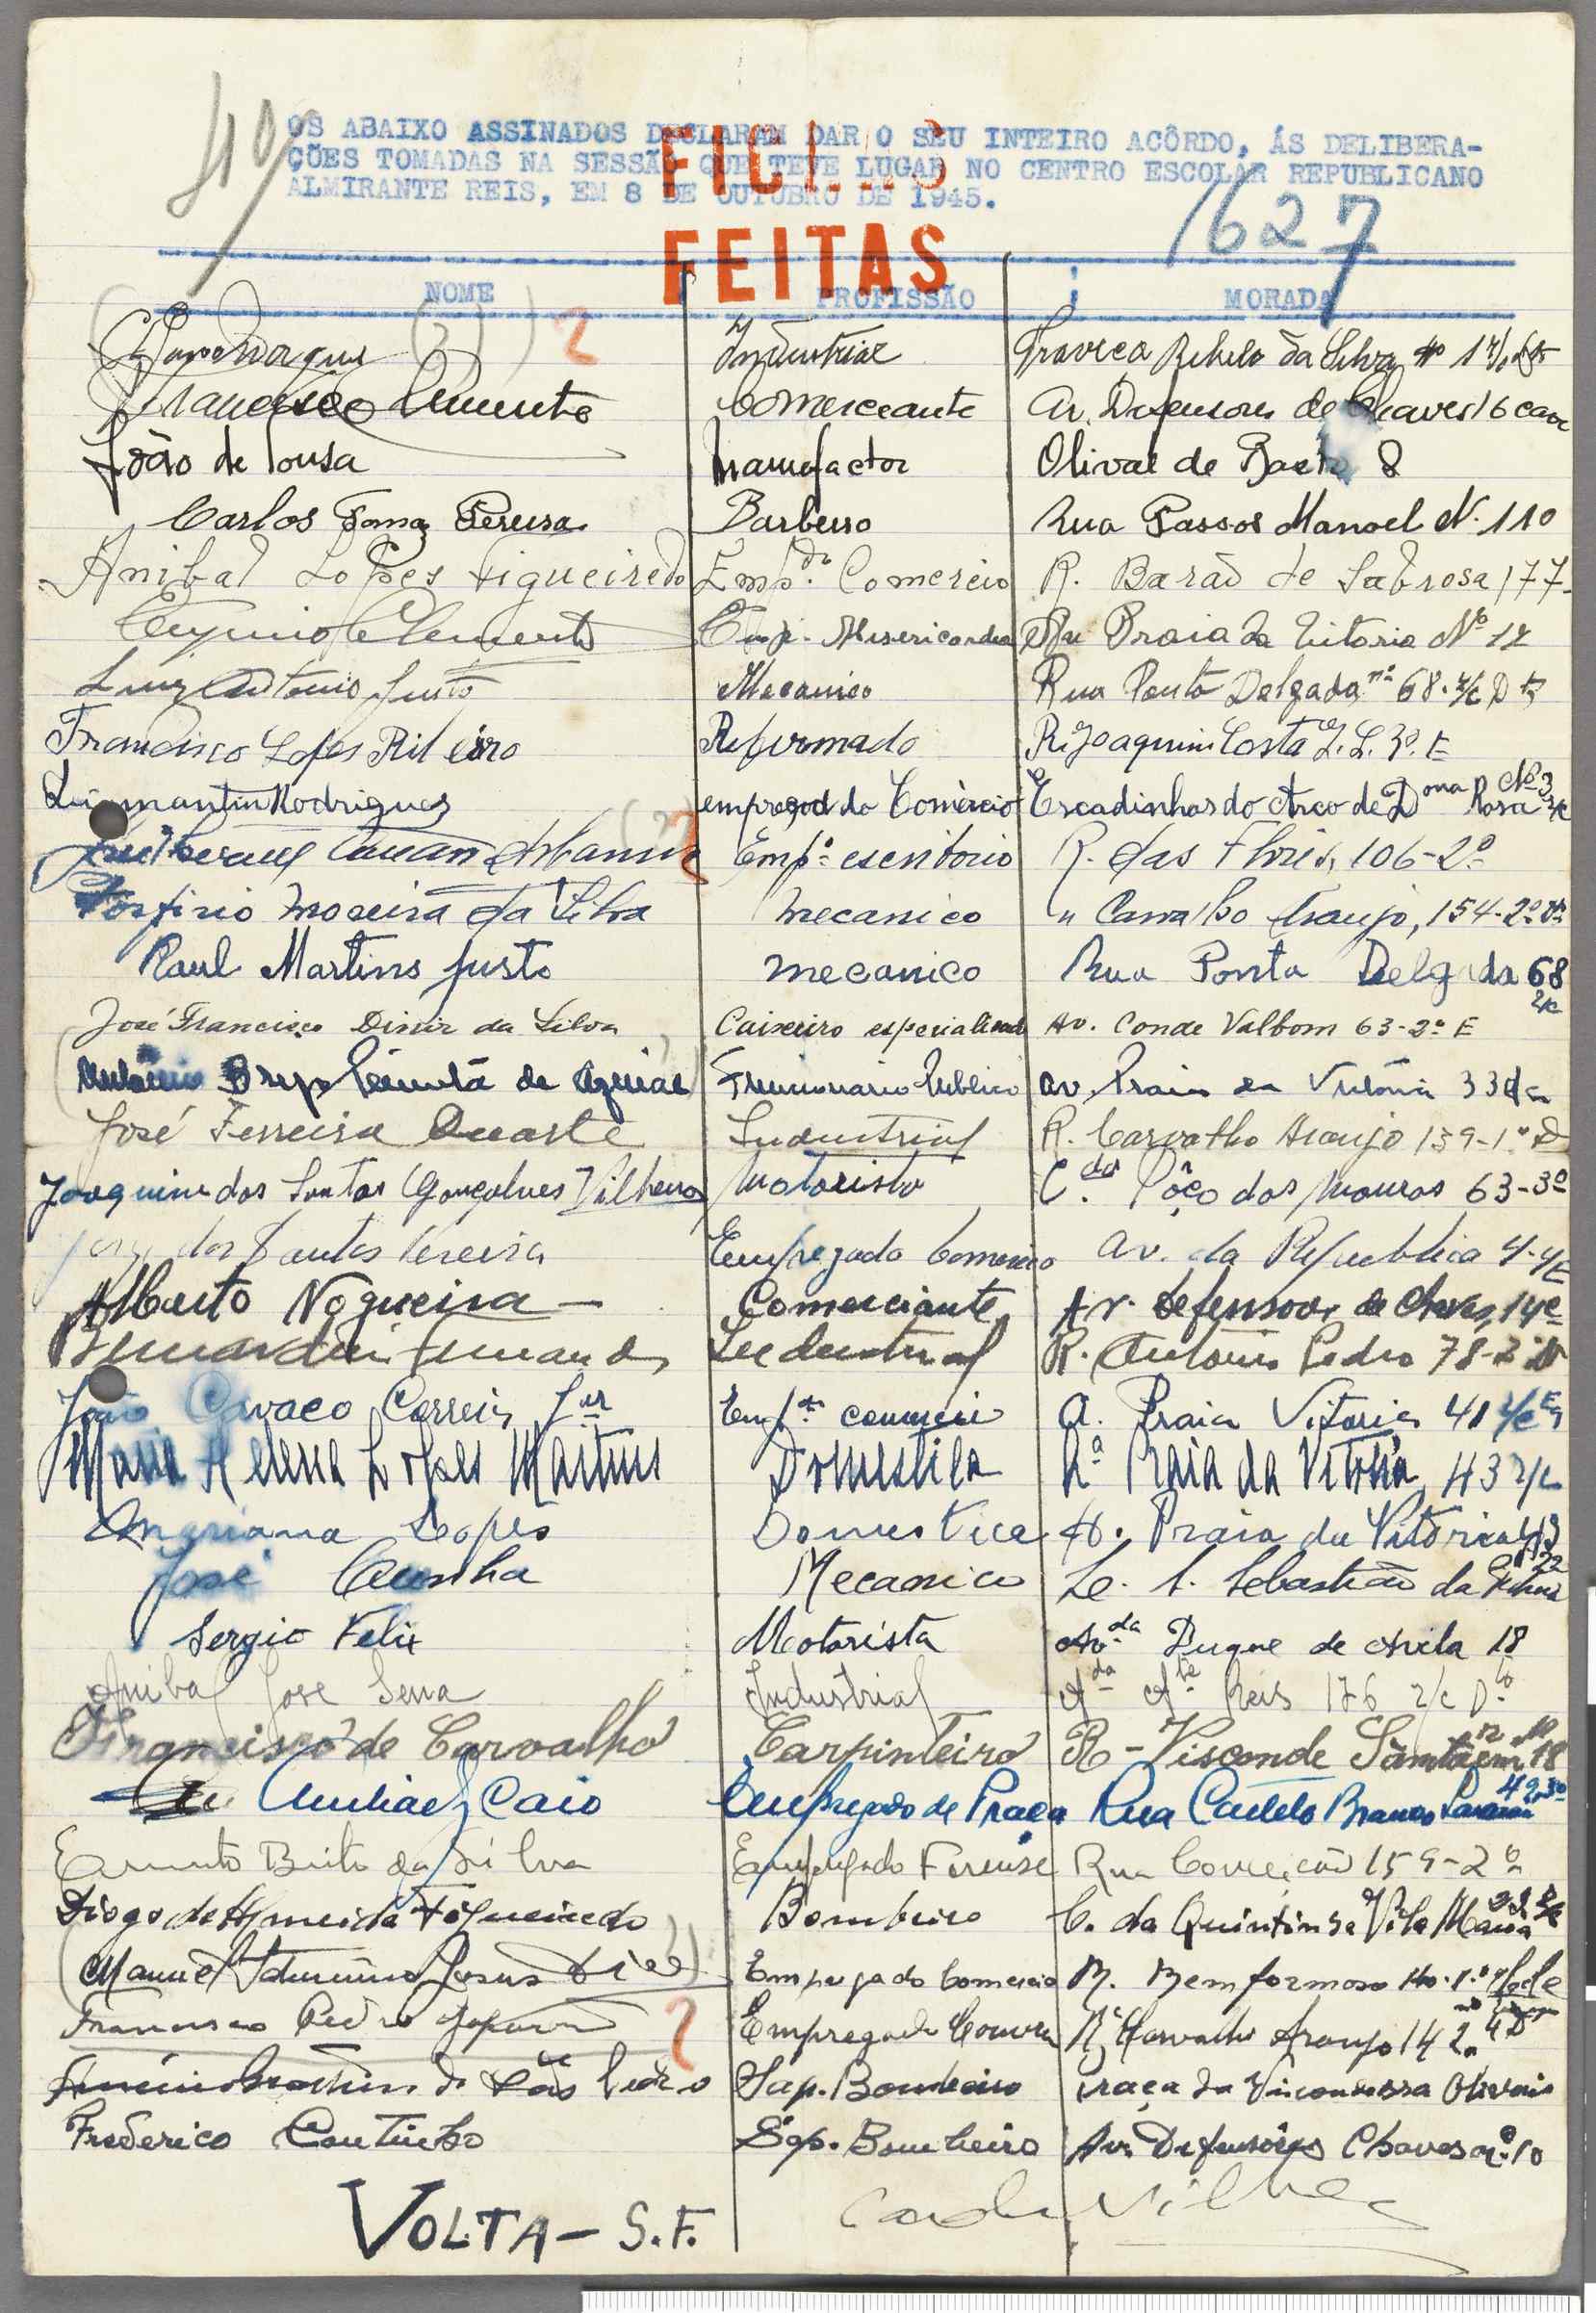 40
OS ABAIXO ASSINADOS DECLARAM DAR O SEU INTEIRO ACÔRDO, ÁS DELIBERA-
ÇÕES TOMADAS NA SESSÃO QUE TEVE LUGAR NO CENTRO ESCOLAR REPUBLICANO
ALMIRANTE REIS, EM 8 DE OUTUBRO DE 1945.
FICHAS
FEITAS
1627
NOME PROFISSÃO MORADA
(?) 2 Industrial Traveça Rebelo da Silva nº 1
Francisco Clemente Comerceante Av. Defensores de Chaves 16 cave
João de Sousa Manufactor Olival de Basto 8
Carlos Pereira Barbeiro Rua Passos Manoel N. 110
Anibal Lopes Figueiredo Empdo. Comercio R. Barão de Sabrosa 177-
Clemente Emp. Misericordia Praia da Vitoria Nº 12
Luiz Antonio Justo Mecanico Rua Ponta Delgada nº 68. r/c Dto
Francisco Lopes Ribeiro Reformado R. Joaquim Costa L. L. 3º. E
Diamantin Rodrigues empregad do Comércio Escadinhas do Arco de Dona Rosa Nº 3 r/c
Empº escritorio R. das Flores, 106-2º
Porfirio Moreira da Silva mecanico " Carvalho Araujo, 154-2º Dto
Raul Martins Justo mecanico Rua Ponta Delgada 68 r/c
José Francisco Diniz da Silva Caixeiro especialisado Av. Conde Valbom 63-2º E
de Aguiar Funcionario Publico Av. Praia da Vitória 33
José Ferreira Duarte Industrial R. Carvalho Araujo 139-1º D
Joaquim dos Santos Gonçalves Vilhena Motorista Cda. Pôço dos Mouros 63-3º
dos Santos Pereira Empregado Comercio Av. da Republica 4-4 E
Alberto Nogueira Comerciante Av. defensores de Chaves, 14 c
Bernardin Fernandes Industrial R. Antonio Pedro 78-
João Cavaco Correia Jor Empdo comercio A. Praia Vitoria 41 r/c Eq
Maria Helena Lopes Martins Domestica Aª Praia da Vitória, 43 r/c
Mariana Lopes Domestica A. Praia da Vitoria 43
José Cunha Mecanico L. S. Sebastião da Pedreira 22
Sergio Felix Motorista Avda Duque de Avila 18
Anibal José Serra Industrial Ada Ate Reis 176 r/c Dto
Francisco de Carvalho Carpinteiro R - Visconde Santarem nº 18
Caio Empregado de Praça Rua Castelo Branco Saraiva 49 3º
Ernesto Brito da Silva Empregado Forense Rua Conceição 159-2º
Diogo de Almeida Figueiredo Bombeiro C. da Quintinha Vila Maria
Manuel Saturnino Jesus Dias Empregado Comercio R. Bemformoso 140-1º
Francisco Pedro 2 Empregado R. Carvalho Araujo 142 4 D
de São Pedro Sap. Bombeiro Praça da Viscondessa Olivais
Frederico Coutinho Sap. Bombeiro Av. Defensôres Chaves nº 10
VOLTA - S.F.